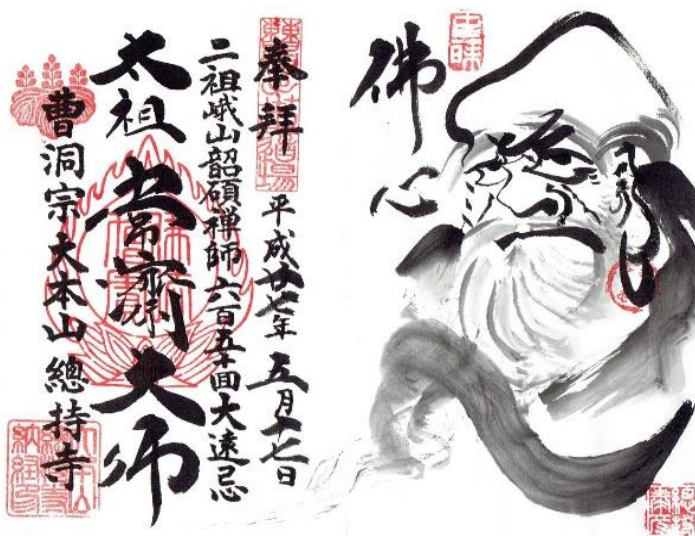 佛心
奉拝
平成廿七年 五月十七日
二祖峨山韶碩禅師 六百五十回大遠忌
太祖 常濟大師
曹洞宗大本山 總持寺